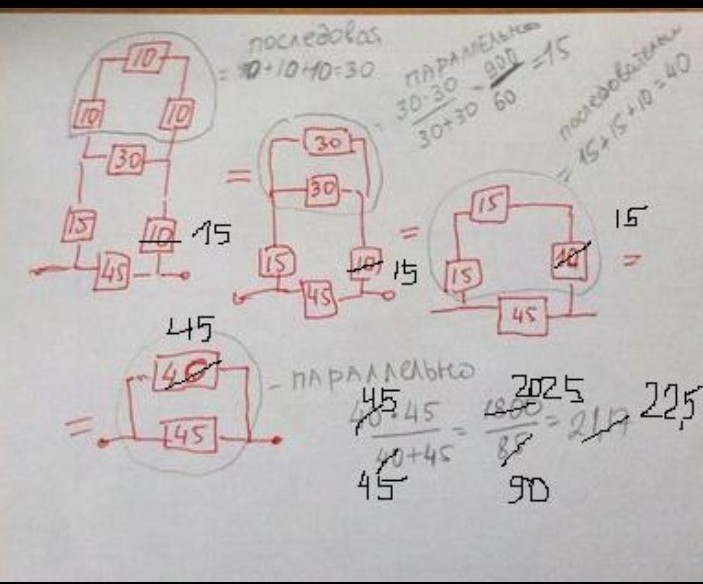 10
последовая
= 10+10+10=30
10 10
30
15 10 15
45
=
30
30
15 10 15
45
параллельно
30·30 / 30+30 = 900 / 60 = 15
=
15
15 10 15
45
последовательн
= 15+15+10=40
=
45
40
45
- параллельно
45 2025
40·45 / 40+45 = 1800 / 85 = 21,17 22,5
45 90